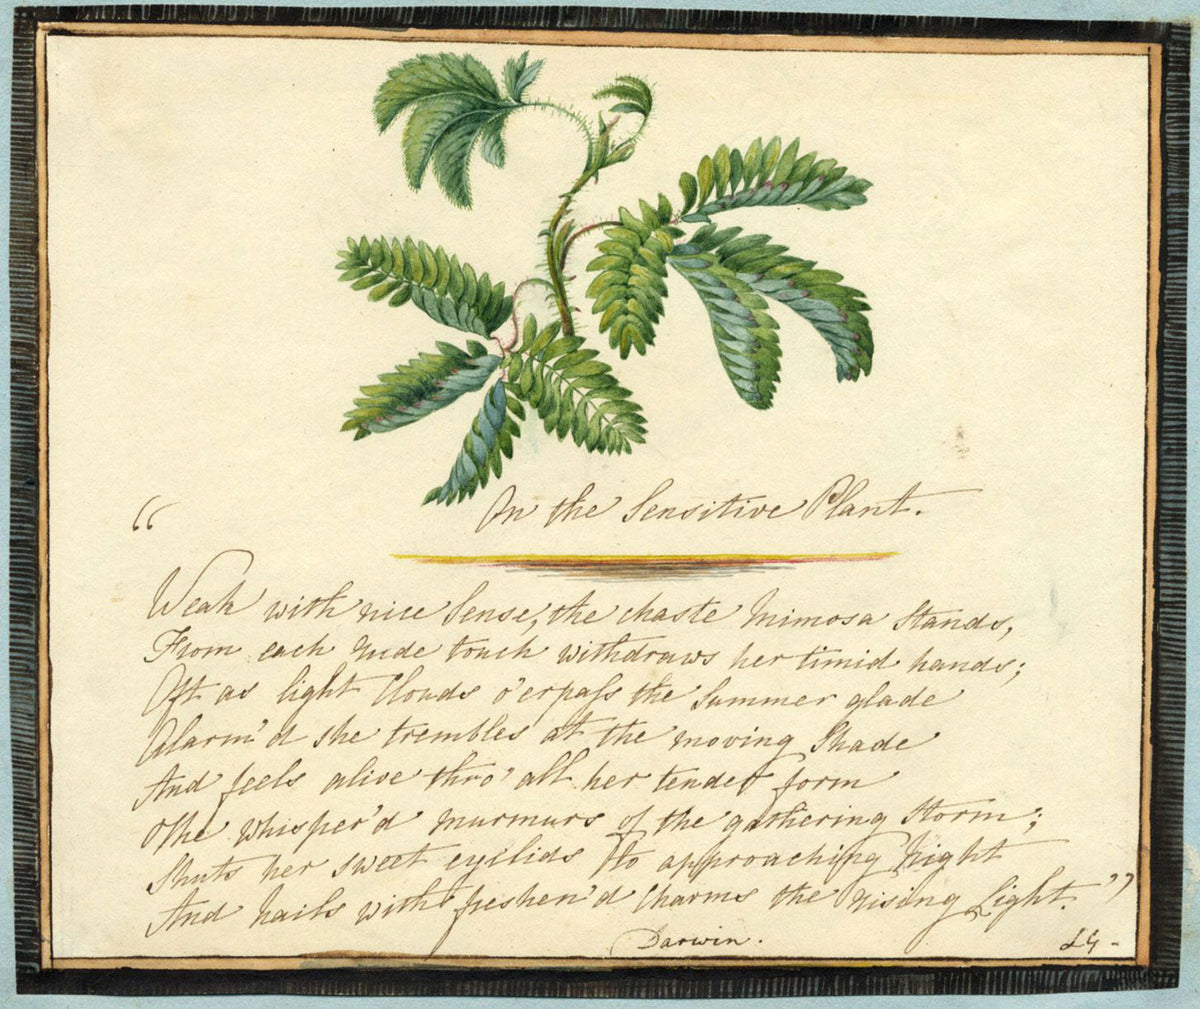 On the Sensitive Plant.
“
Weak with nice Sense, the chaste Mimosa Stands,
From each rude touch withdraws her timid hands;
Oft as light Clouds o'erpaſs the Summer glade
Alarm'd she trembles at the moving Shade
And feels alive thro' all her tender form
The whisper'd murmurs of the gathering Storm;
Shuts her sweet eyelids to approaching Night
And hails with freshen'd Charms the rising Light.”
Darwin.
LG-